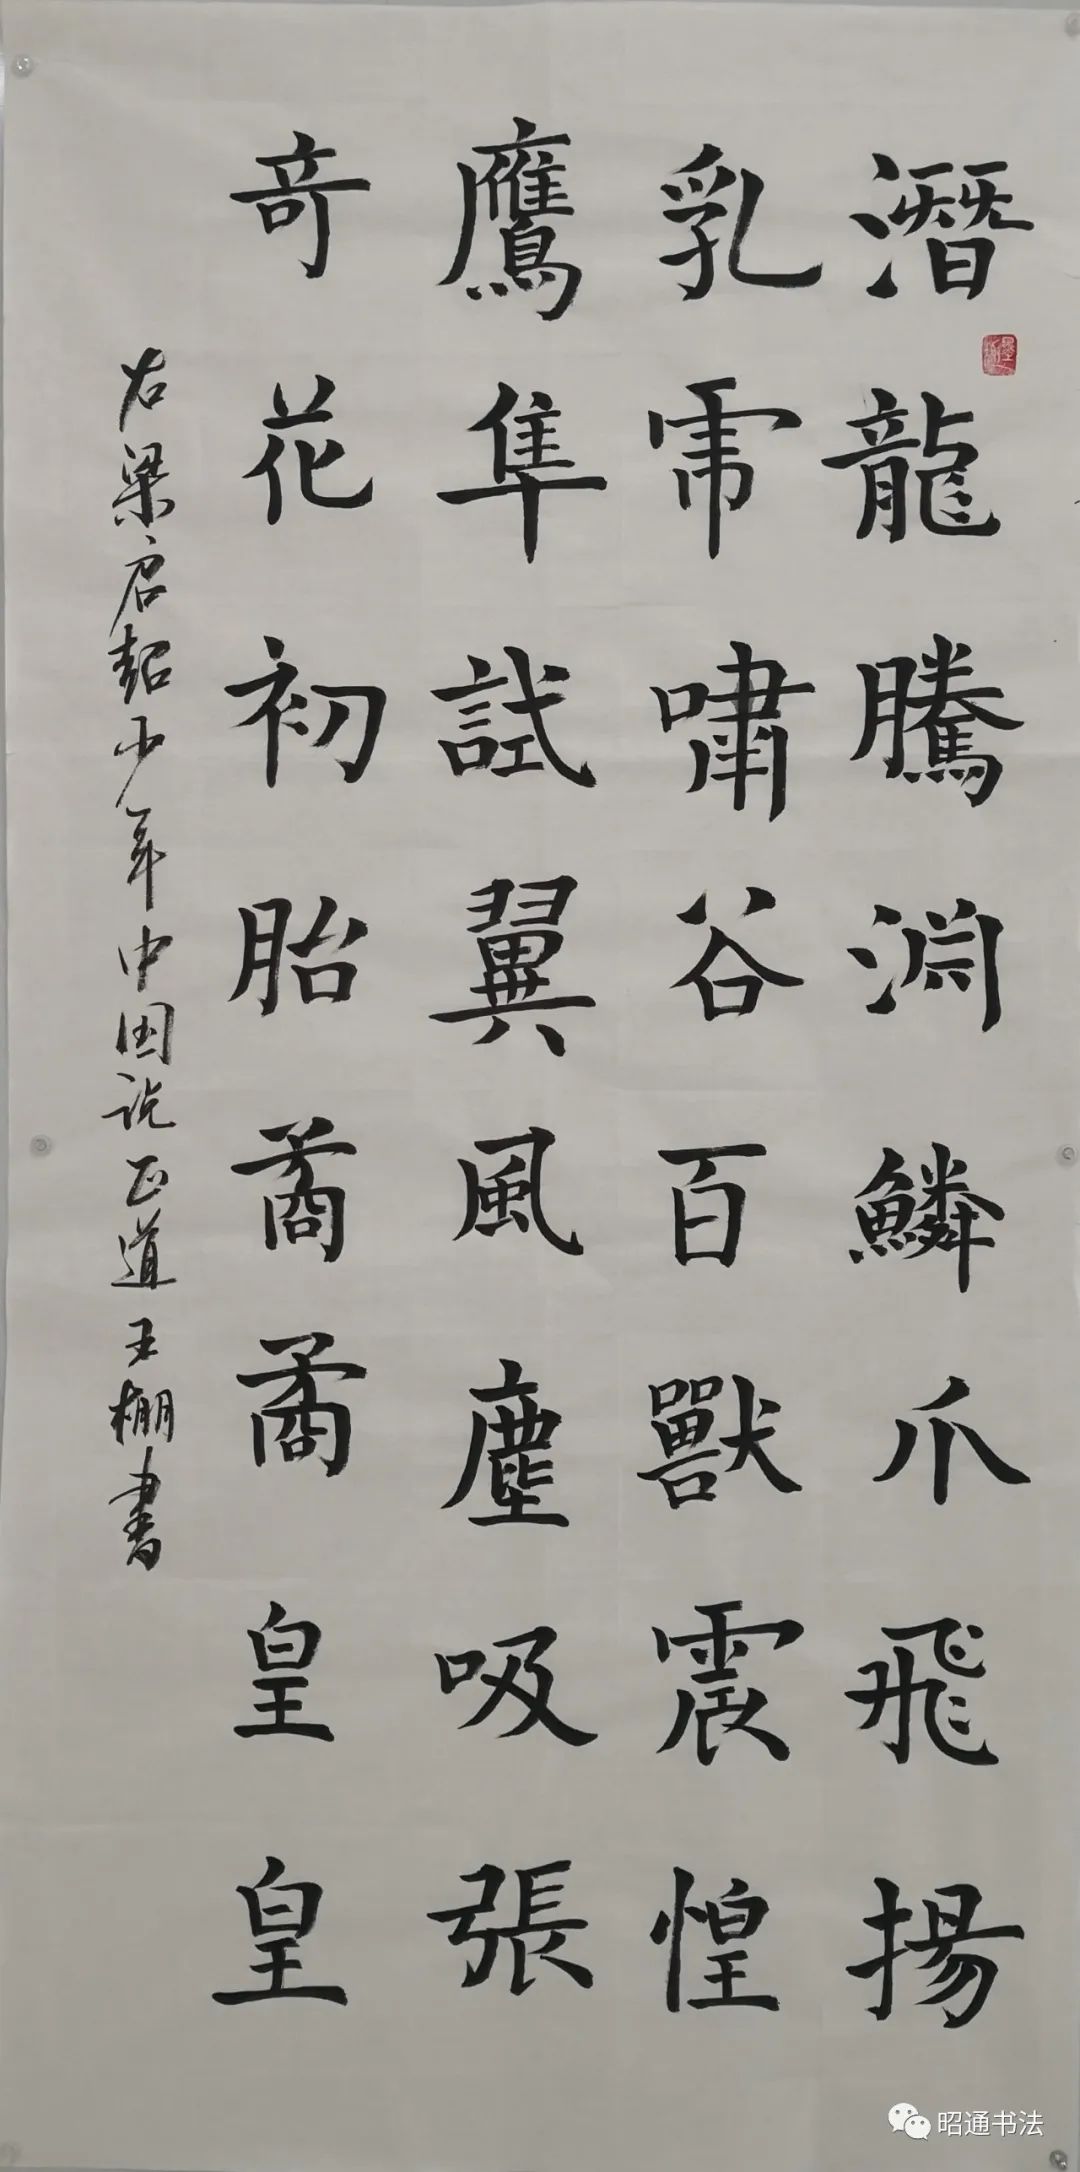 潛龍騰淵鱗爪飛揚
乳虎嘯谷百獸震惶
鷹隼試翼風塵吸張
奇花初胎矞矞皇皇
右梁启超少年中国说正道王棚書
昭通书法